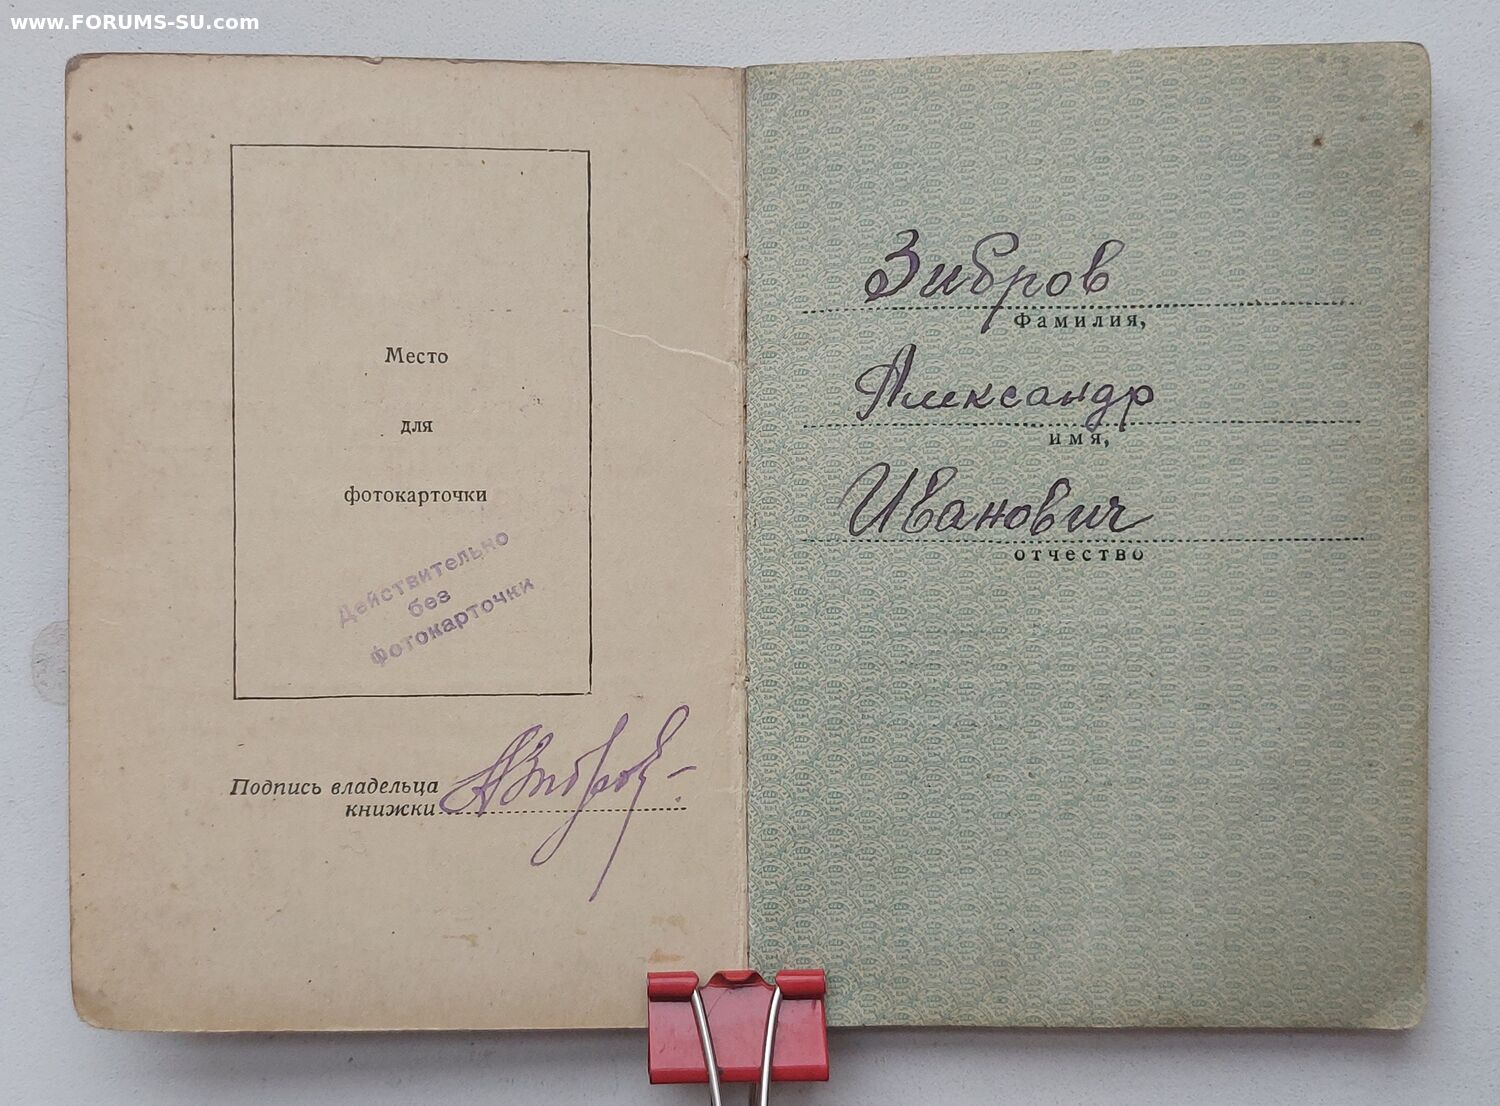 www.FORUMS-SU.com
Место
для
фотокарточки
Действительно
без
фотокарточки
Подпись владельца
книжки
АЗибров
Зибров
Фамилия,
Александр
имя,
Иванович
отчество